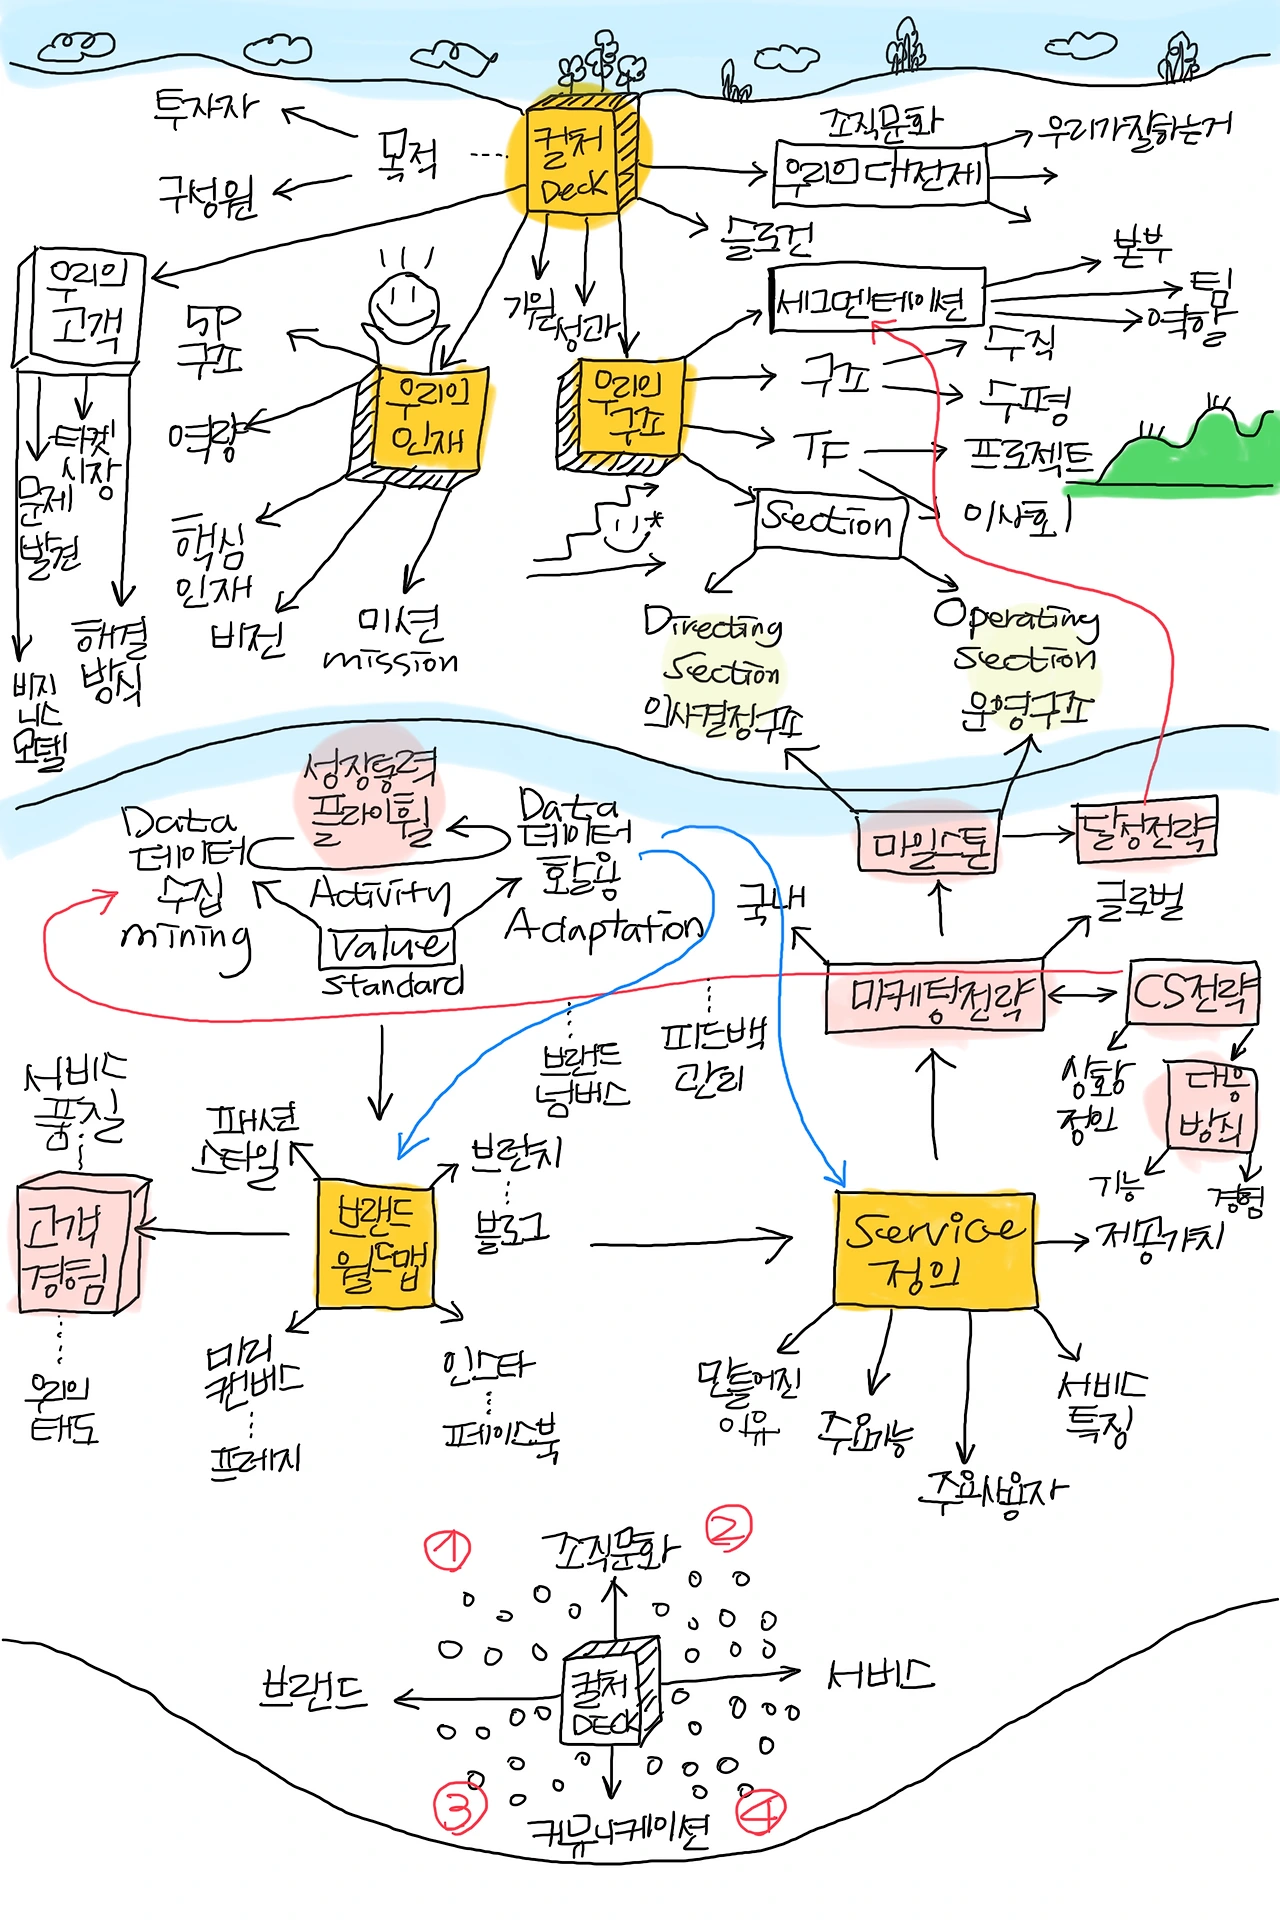 투자자
목적
구성원
컬처
Deck
조직문화
우리의 대전제
우리가 잘하는거
슬로건
우리의
고객
5P
구조
역량
핵심
인재
비전
미션
mission
우리의
인재
기원
성과
우리의
구조
세그멘테이션
본부
팀
역할
구조
수직
수평
TF
프로젝트
이사회
Section
Directing
Section
의사결정구조
Operating
Section
운영구조
타켓
시장
문제
발견
해결
방식
비지
니스
모델
성장동력
플라이휠
Data
데이터
수집
mining
Activity
Value
standard
Data
데이터
활용
Adaptation
마일스톤
달성전략
국내
글로벌
마케팅전략
CS전략
상황
정의
대응
방식
기능
경험
브랜드
넘버스
피드백
관리
서비스
품질
고객
경험
우리의
태도
패션
스타일
브런치
블로그
브랜드
월드맵
미리
캔버스
프레지
인스타
페이스북
Service
정의
제공가치
만들어진
이유
주요기능
주요사용자
서비스
특징
1
조직문화
2
브랜드
컬처
DECK
서비스
3
커뮤니케이션
4